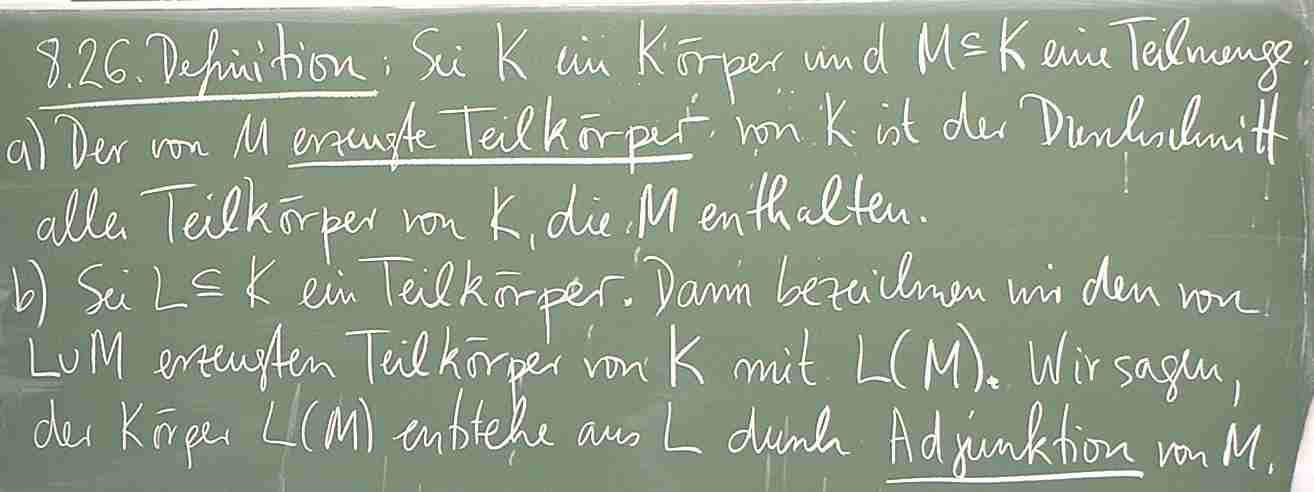 8.26. Definition: Sei K ein Körper und M ⊆ K eine Teilmenge.
a) Der von M erzeugte Teilkörper von K ist der Durchschnitt
aller Teilkörper von K, die M enthalten.
b) Sei L ⊆ K ein Teilkörper. Dann bezeichnen wir den von
L∪M erzeugten Teilkörper von K mit L(M). Wir sagen,
der Körper L(M) entstehe aus L durch Adjunktion von M.